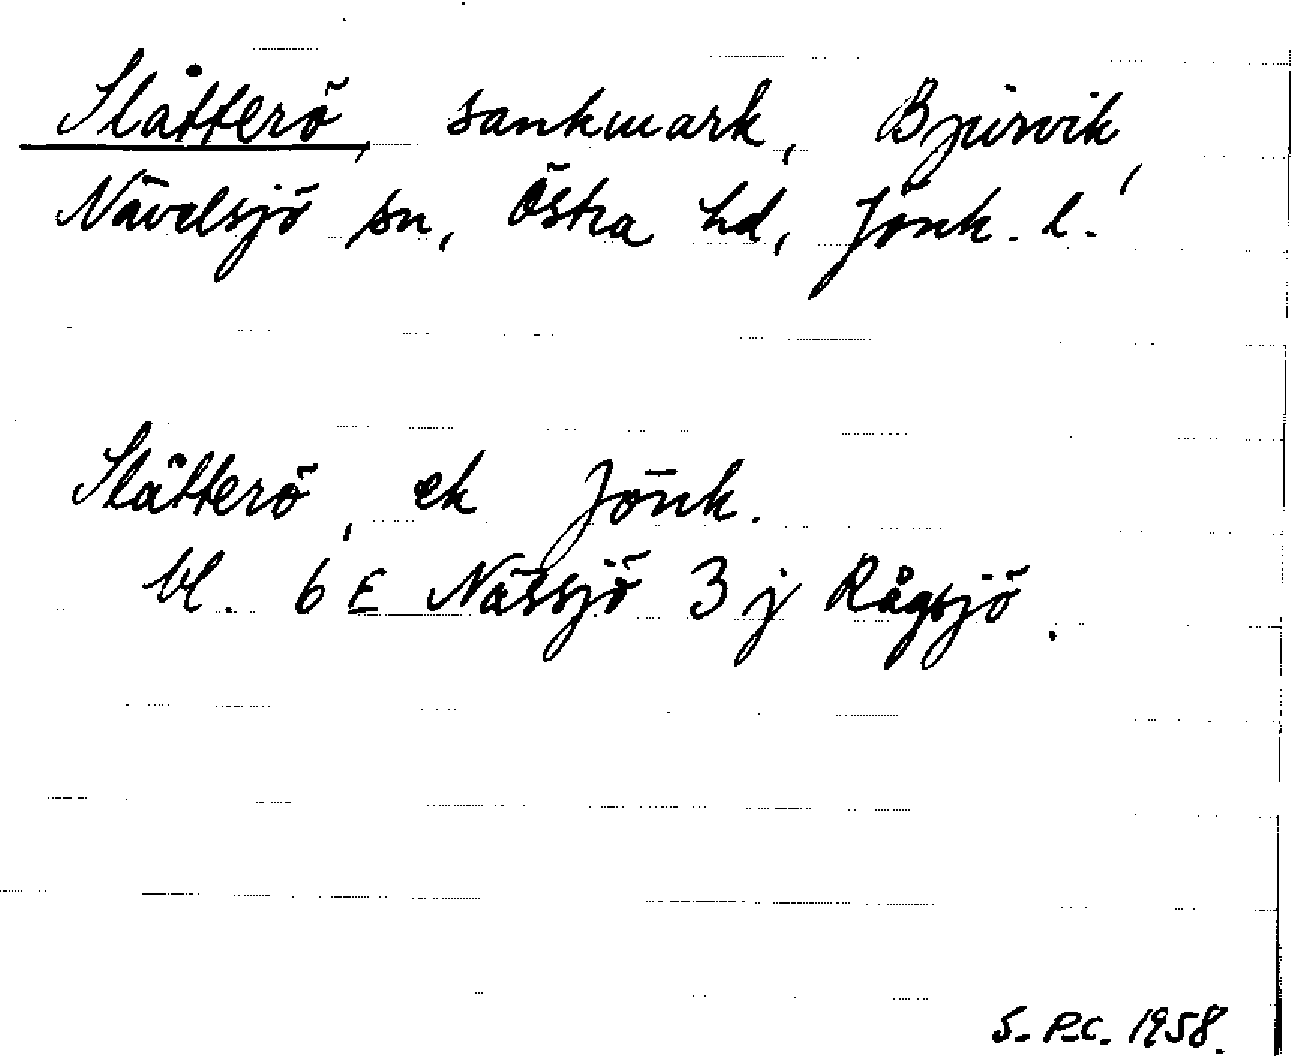 Slåtterö, sankmark, Bjursvik,
Nävelsjö sn, Östra hd, Jönk. l.
Slätterö, ek Jönk.
bl. 6 E Nässjö 3 j Rågsjö.
S. P.C. 1958.